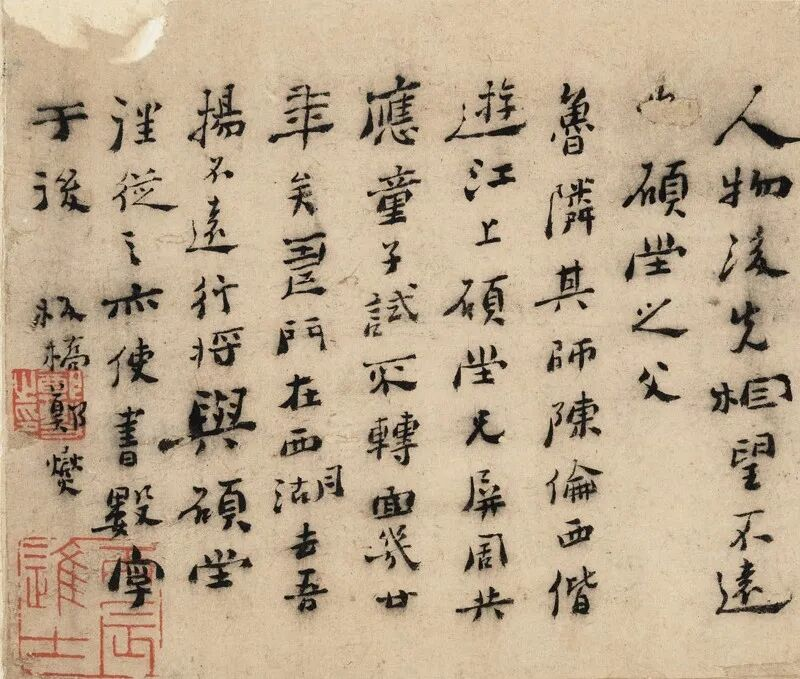 人物後先相望不遠
山碩堂之父
魯隣其師陳倫西偕
遊江上碩堂兄屏周共
應童子試轉面幾廿
年矣門在西湖去吾
揚不遠行將與碩堂
往從之亦使書數字
于後 板橋鄭燮
丙辰進士